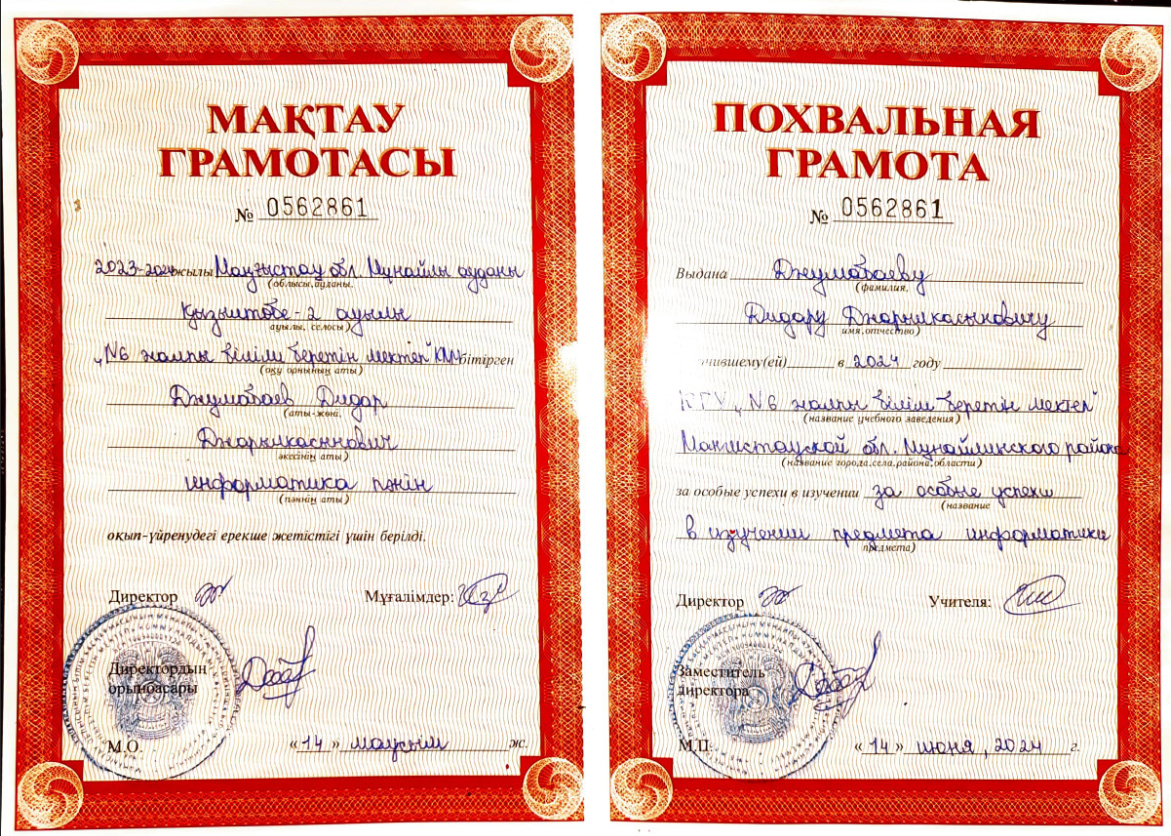 МАҚТАУ
ГРАМОТАСЫ
№ 0562861
2023-2024 жылы Маңғыстау обл. Мұнайлы ауданы
(облысы, ауданы,
Қызылтөбе-2 ауылы
ауылы, селосы)
"№6 жалпы білім беретін мектеп" КММ бітірген
(оқу орнының аты)
Джумабаев Дидар
(аты-жөні,
әкесінің аты)
информатика пәнін
(пәннің аты)
оқып-үйренудегі ерекше жетістігі үшін берілді.
Директор
Мұғалімдер:
Директордың
орынбасары
М.О.
« 14 » маусым ж.
ПОХВАЛЬНАЯ
ГРАМОТА
№ 0562861
Выдана Джумабаеву
(фамилия,
Дидару
имя, отчество)
в 2024 году
КГУ "№6 жалпы білім беретін мектеп"
(название учебного заведения)
Мангистауской обл. Мунайлинского района
(название города, села, района, области)
за особые успехи в изучении за особые успехи
(название
в изучении предмета информатики
предмета)
Директор
Учителя:
Заместитель
директора
М.П.
« 14 » июня, 2024 г.